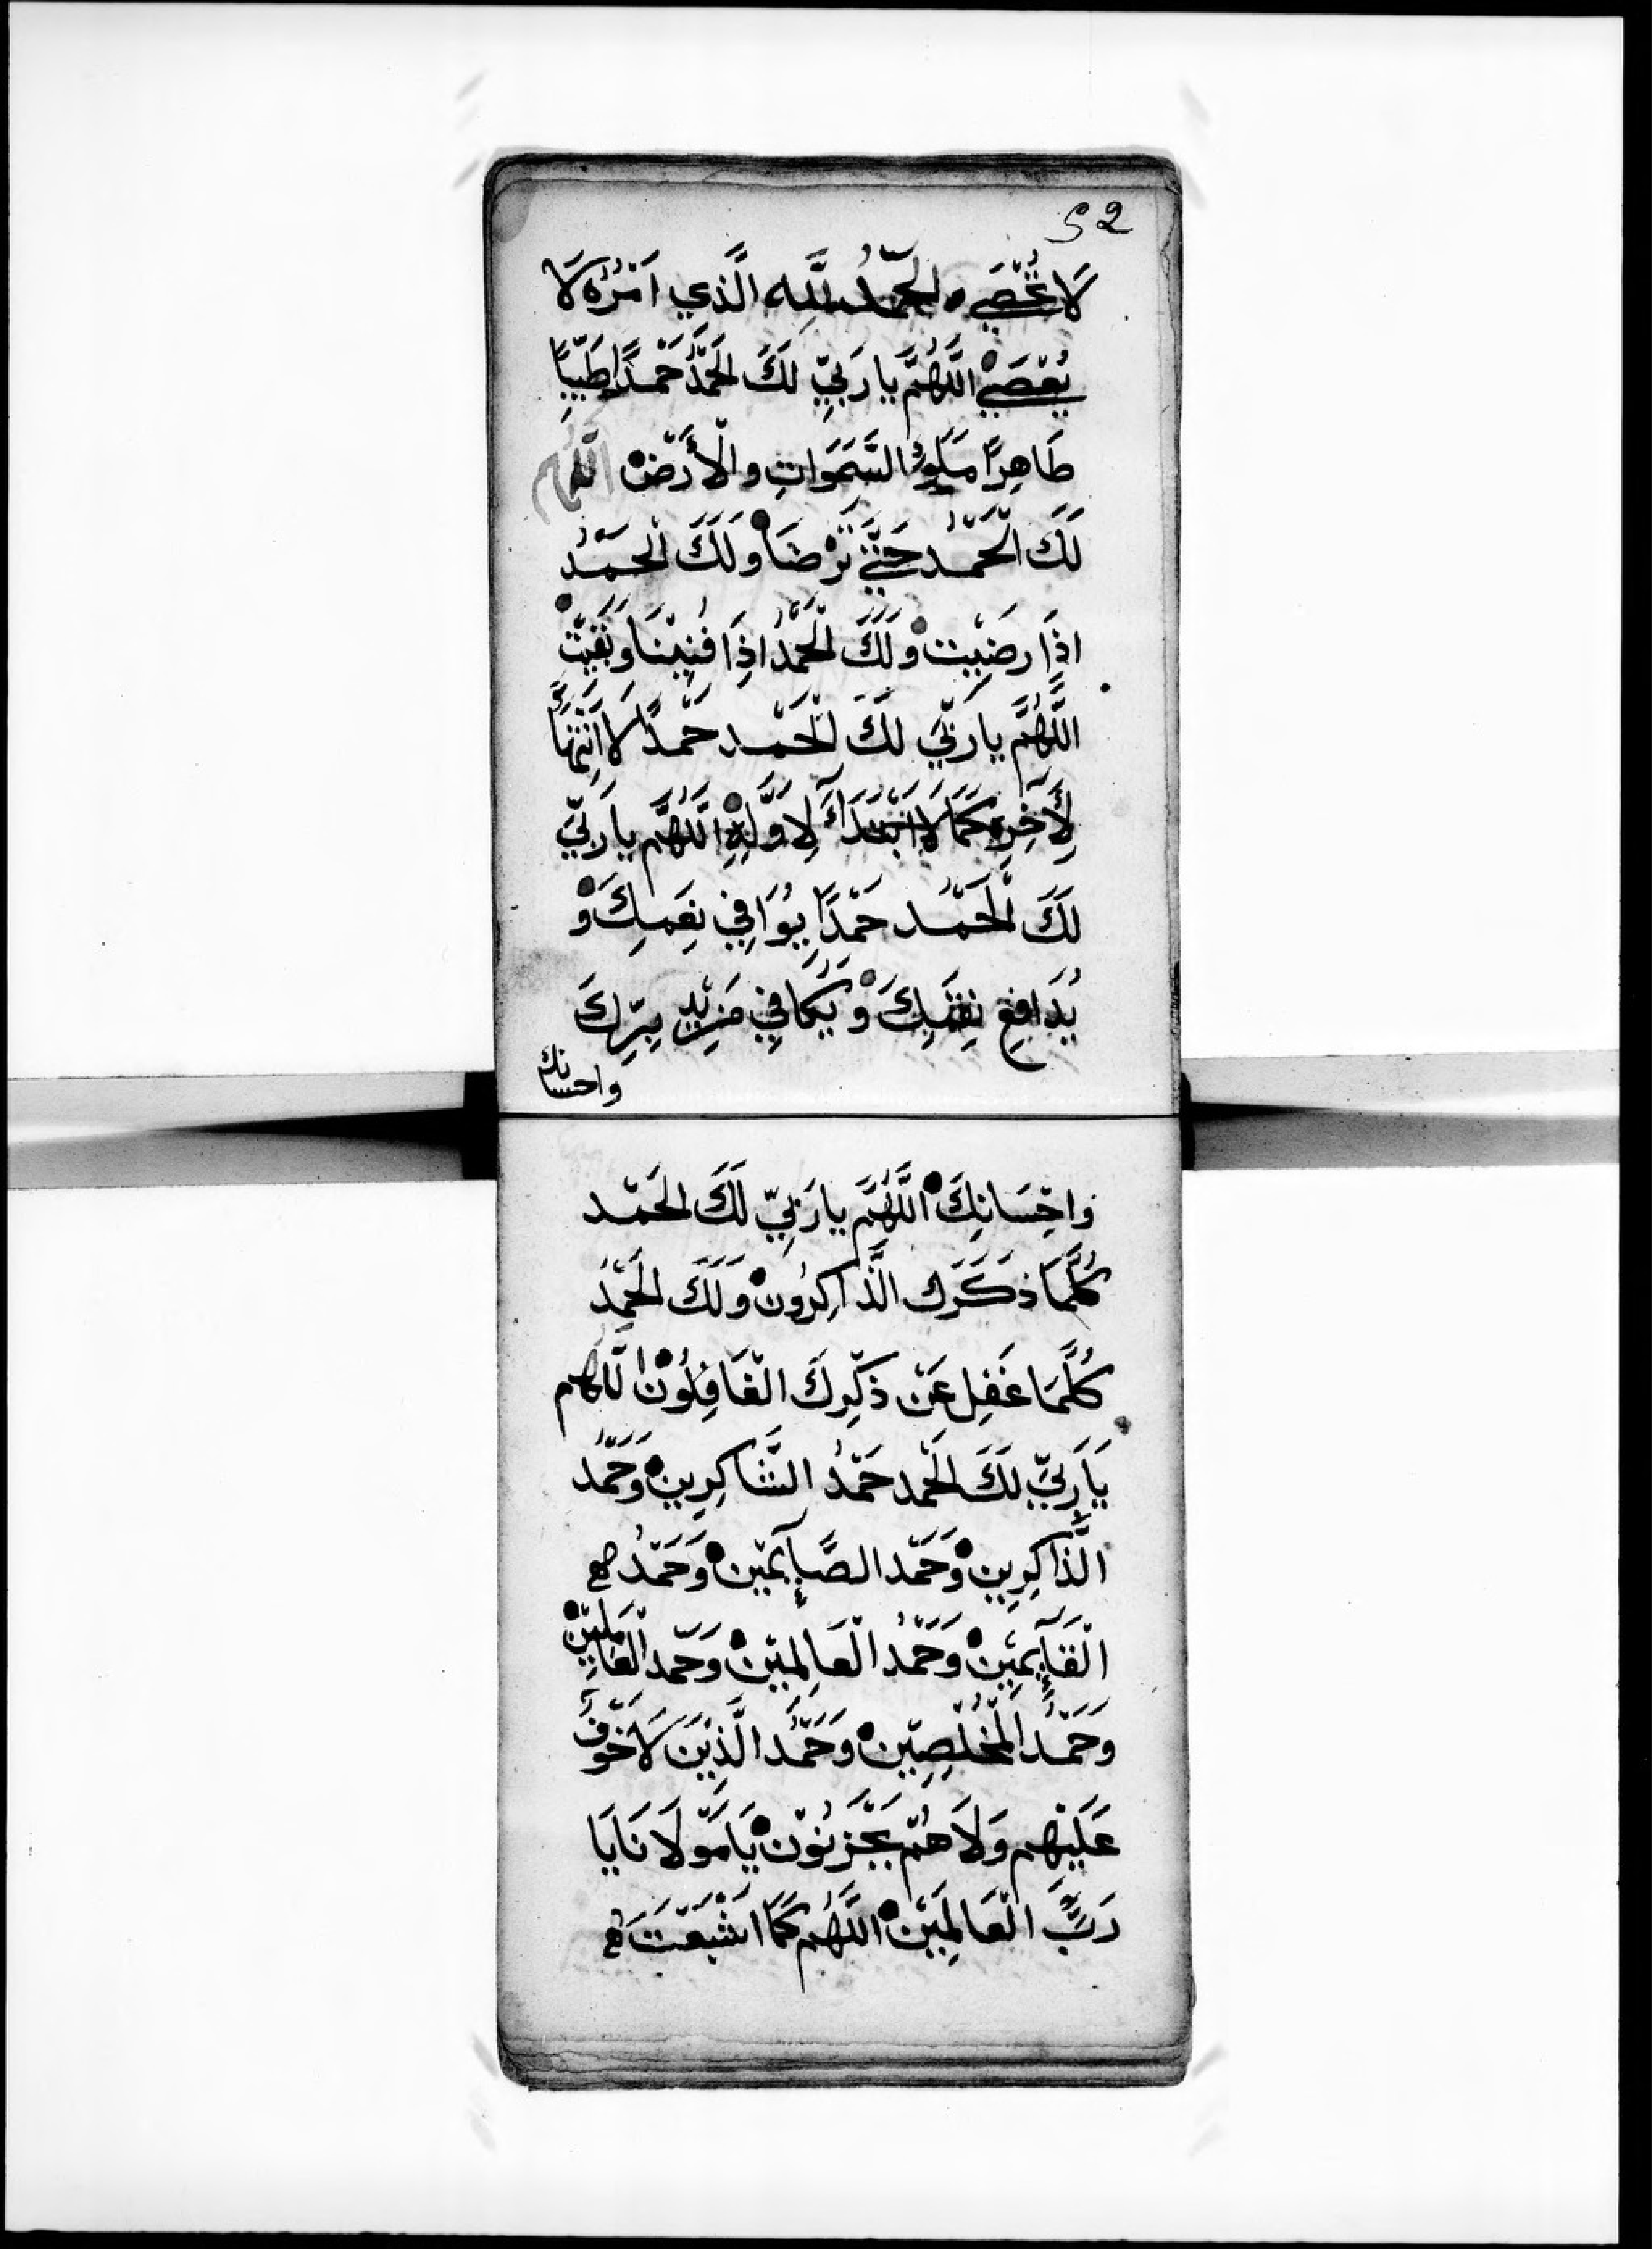 52
لَا تُحْصَي والحَمْدُ للَّهِ الَّذي اَمْرُهُ لَا
يُعْصَي اللَّهُمَّ يا رَبِّي لَكَ الحَمْدُ حَمْدًا طَيِّبًا
طَاهِرًا مِلَؤُ السَّمَوَاتِ والْأَرْضْ اللهم
لَكَ الْحَمْدُ حَتَّي تَرْضَا وَلَكَ الْحَمْدُ
اذَا رضِيْت وَلَكَ الْحَمْدُ اذَِا فَنِيْنَا وَبَقَيْتْ
اللَّهُمَّ يا ربِّي لَكَ الْحَمْد حَمْدًا لَا اِنْتِهَآءَ
لِآخِرِهِ كَمَا لَا ابْتِدَآءَ لِاَوَّلِهِ اللَّهُمَّ يا رَبِّي
لَكَ الْحَمْد حَمْدًا يُوَافِي نِعَمِكَ وَ
يُدَافِعِ نِقَمِكَ وَيُكَافِي مَزِيْدِ بِرِّكَ
واحسانك
وَاحِْسَانِكَ اللَّهُمَّ يا رَبِّي لَكَ الحَمْد
كُلَّمَا ذَكَرَك الَّذاكِرُون وَلَكَ الْحَمْدُ
كُلَّمَا غَفِل عَنْ ذِكْرِكَ الْغَافِلُوْن اللهم
يَا رَبِّي لَكَ الْحَمْد حَمْدُ الشَّاكِرِيْن وَحَمْدُ
الَّذاكِرِيْن وَحَمْد الصَّآئِمِيْن وَحَمْدُ
الْقَآئِمِيْن وَحَمْدُ الْعَالِمِيْن وَحَمْد الْعَامِلِيْن
وَحَمْدُ الْمُخْلِصِيْن وَحَمْدُ الَّذِيْنَ لَا خَوْفٌ
عَلَيْهِم وَلَا هُمْ يَحْزَنُوْن يَا مَوْلَانَا يَا
رَبَّ الْعَالَمِيْنْ اللَّهُمَ كَمَا اشْبَعْتَ